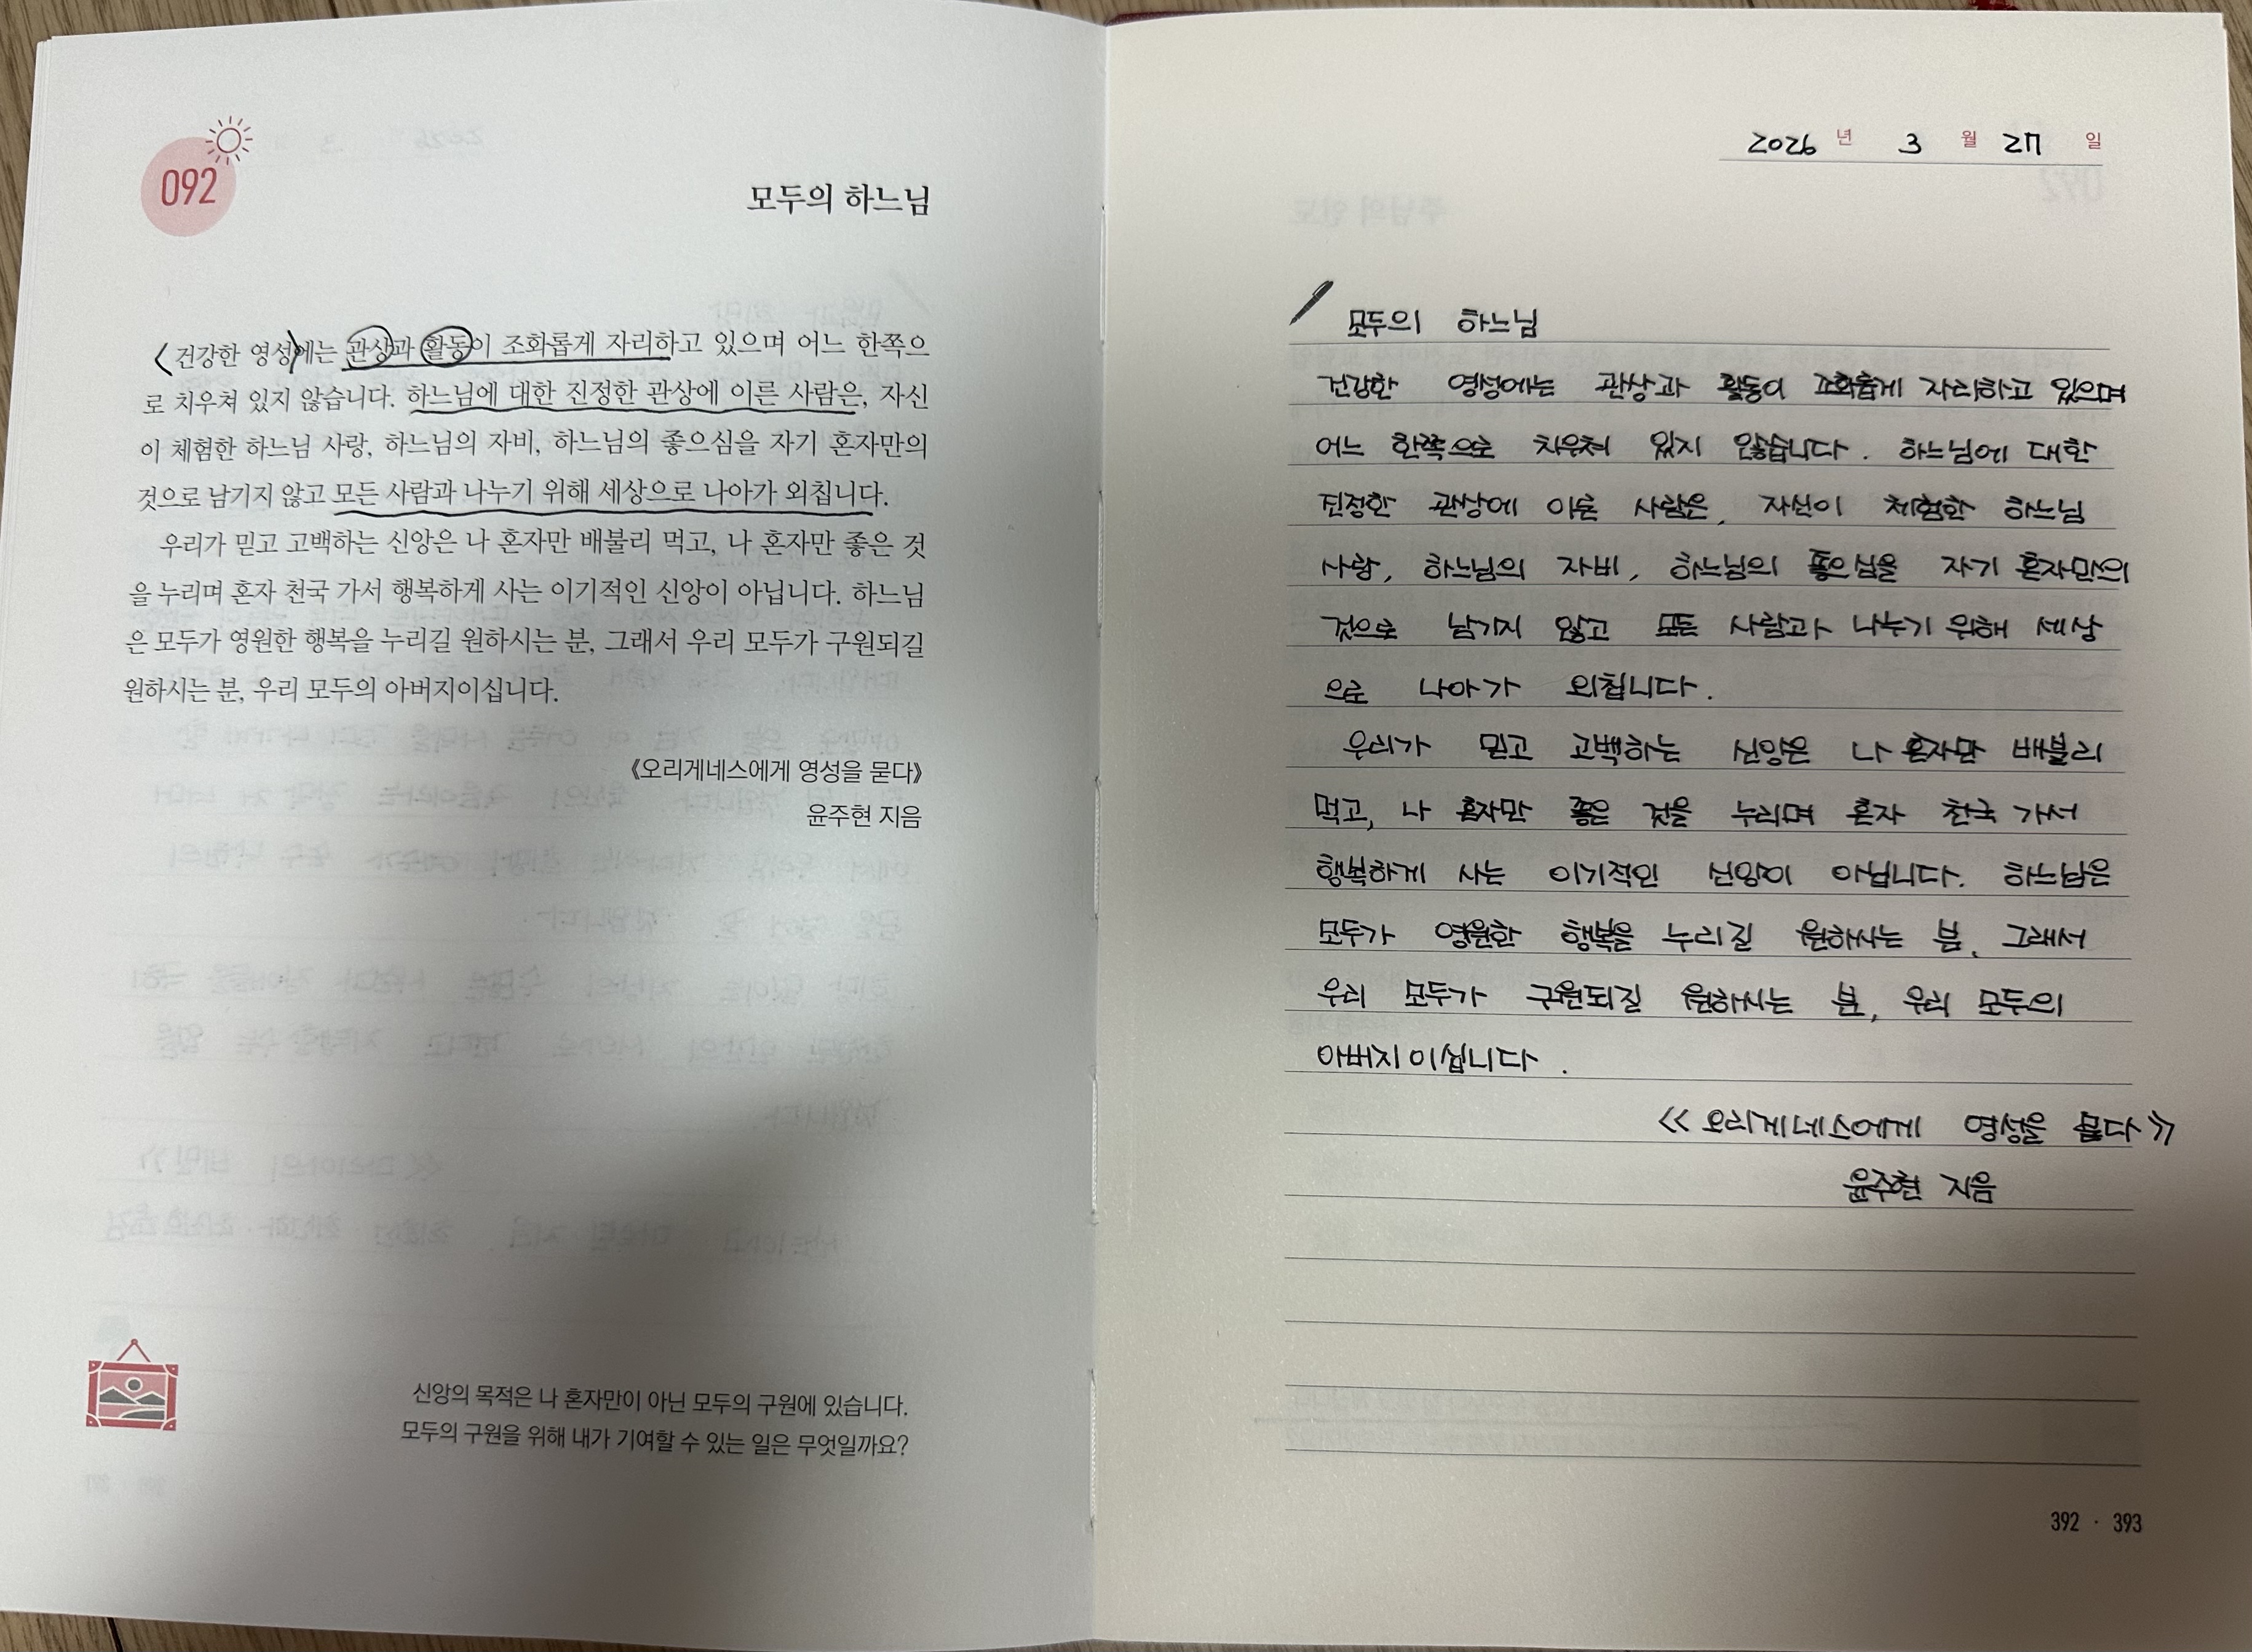 092
모두의 하느님
건강한 영성에는 관상과 활동이 조화롭게 자리하고 있으며 어느 한쪽으
로 치우쳐 있지 않습니다. 하느님에 대한 진정한 관상에 이른 사람은, 자신
이 체험한 하느님 사랑, 하느님의 자비, 하느님의 좋으심을 자기 혼자만의
것으로 남기지 않고 모든 사람과 나누기 위해 세상으로 나아가 외칩니다.
우리가 믿고 고백하는 신앙은 나 혼자만 배불리 먹고, 나 혼자만 좋은 것
을 누리며 혼자 천국 가서 행복하게 사는 이기적인 신앙이 아닙니다. 하느님
은 모두가 영원한 행복을 누리길 원하시는 분, 그래서 우리 모두가 구원되길
원하시는 분, 우리 모두의 아버지이십니다.
《오리게네스에게 영성을 묻다》
윤주현 지음
신앙의 목적은 나 혼자만이 아닌 모두의 구원에 있습니다.
모두의 구원을 위해 내가 기여할 수 있는 일은 무엇일까요?
2026 년 3 월 27 일
모두의 하느님
건강한 영성에는 관상과 활동이 조화롭게 자리하고 있으며
어느 한쪽으로 치우쳐 있지 않습니다. 하느님에 대한
진정한 관상에 이른 사람은, 자신이 체험한 하느님
사랑, 하느님의 자비, 하느님의 좋으심을 자기 혼자만의
것으로 남기지 않고 모든 사람과 나누기 위해 세상
으로 나아가 외칩니다.
우리가 믿고 고백하는 신앙은 나 혼자만 배불리
먹고, 나 혼자만 좋은 것을 누리며 혼자 천국 가서
행복하게 사는 이기적인 신앙이 아닙니다. 하느님은
모두가 영원한 행복을 누리길 원하시는 분, 그래서
우리 모두가 구원되길 원하시는 분, 우리 모두의
아버지이십니다.
《오리게네스에게 영성을 묻다》
윤주현 지음
392 · 393